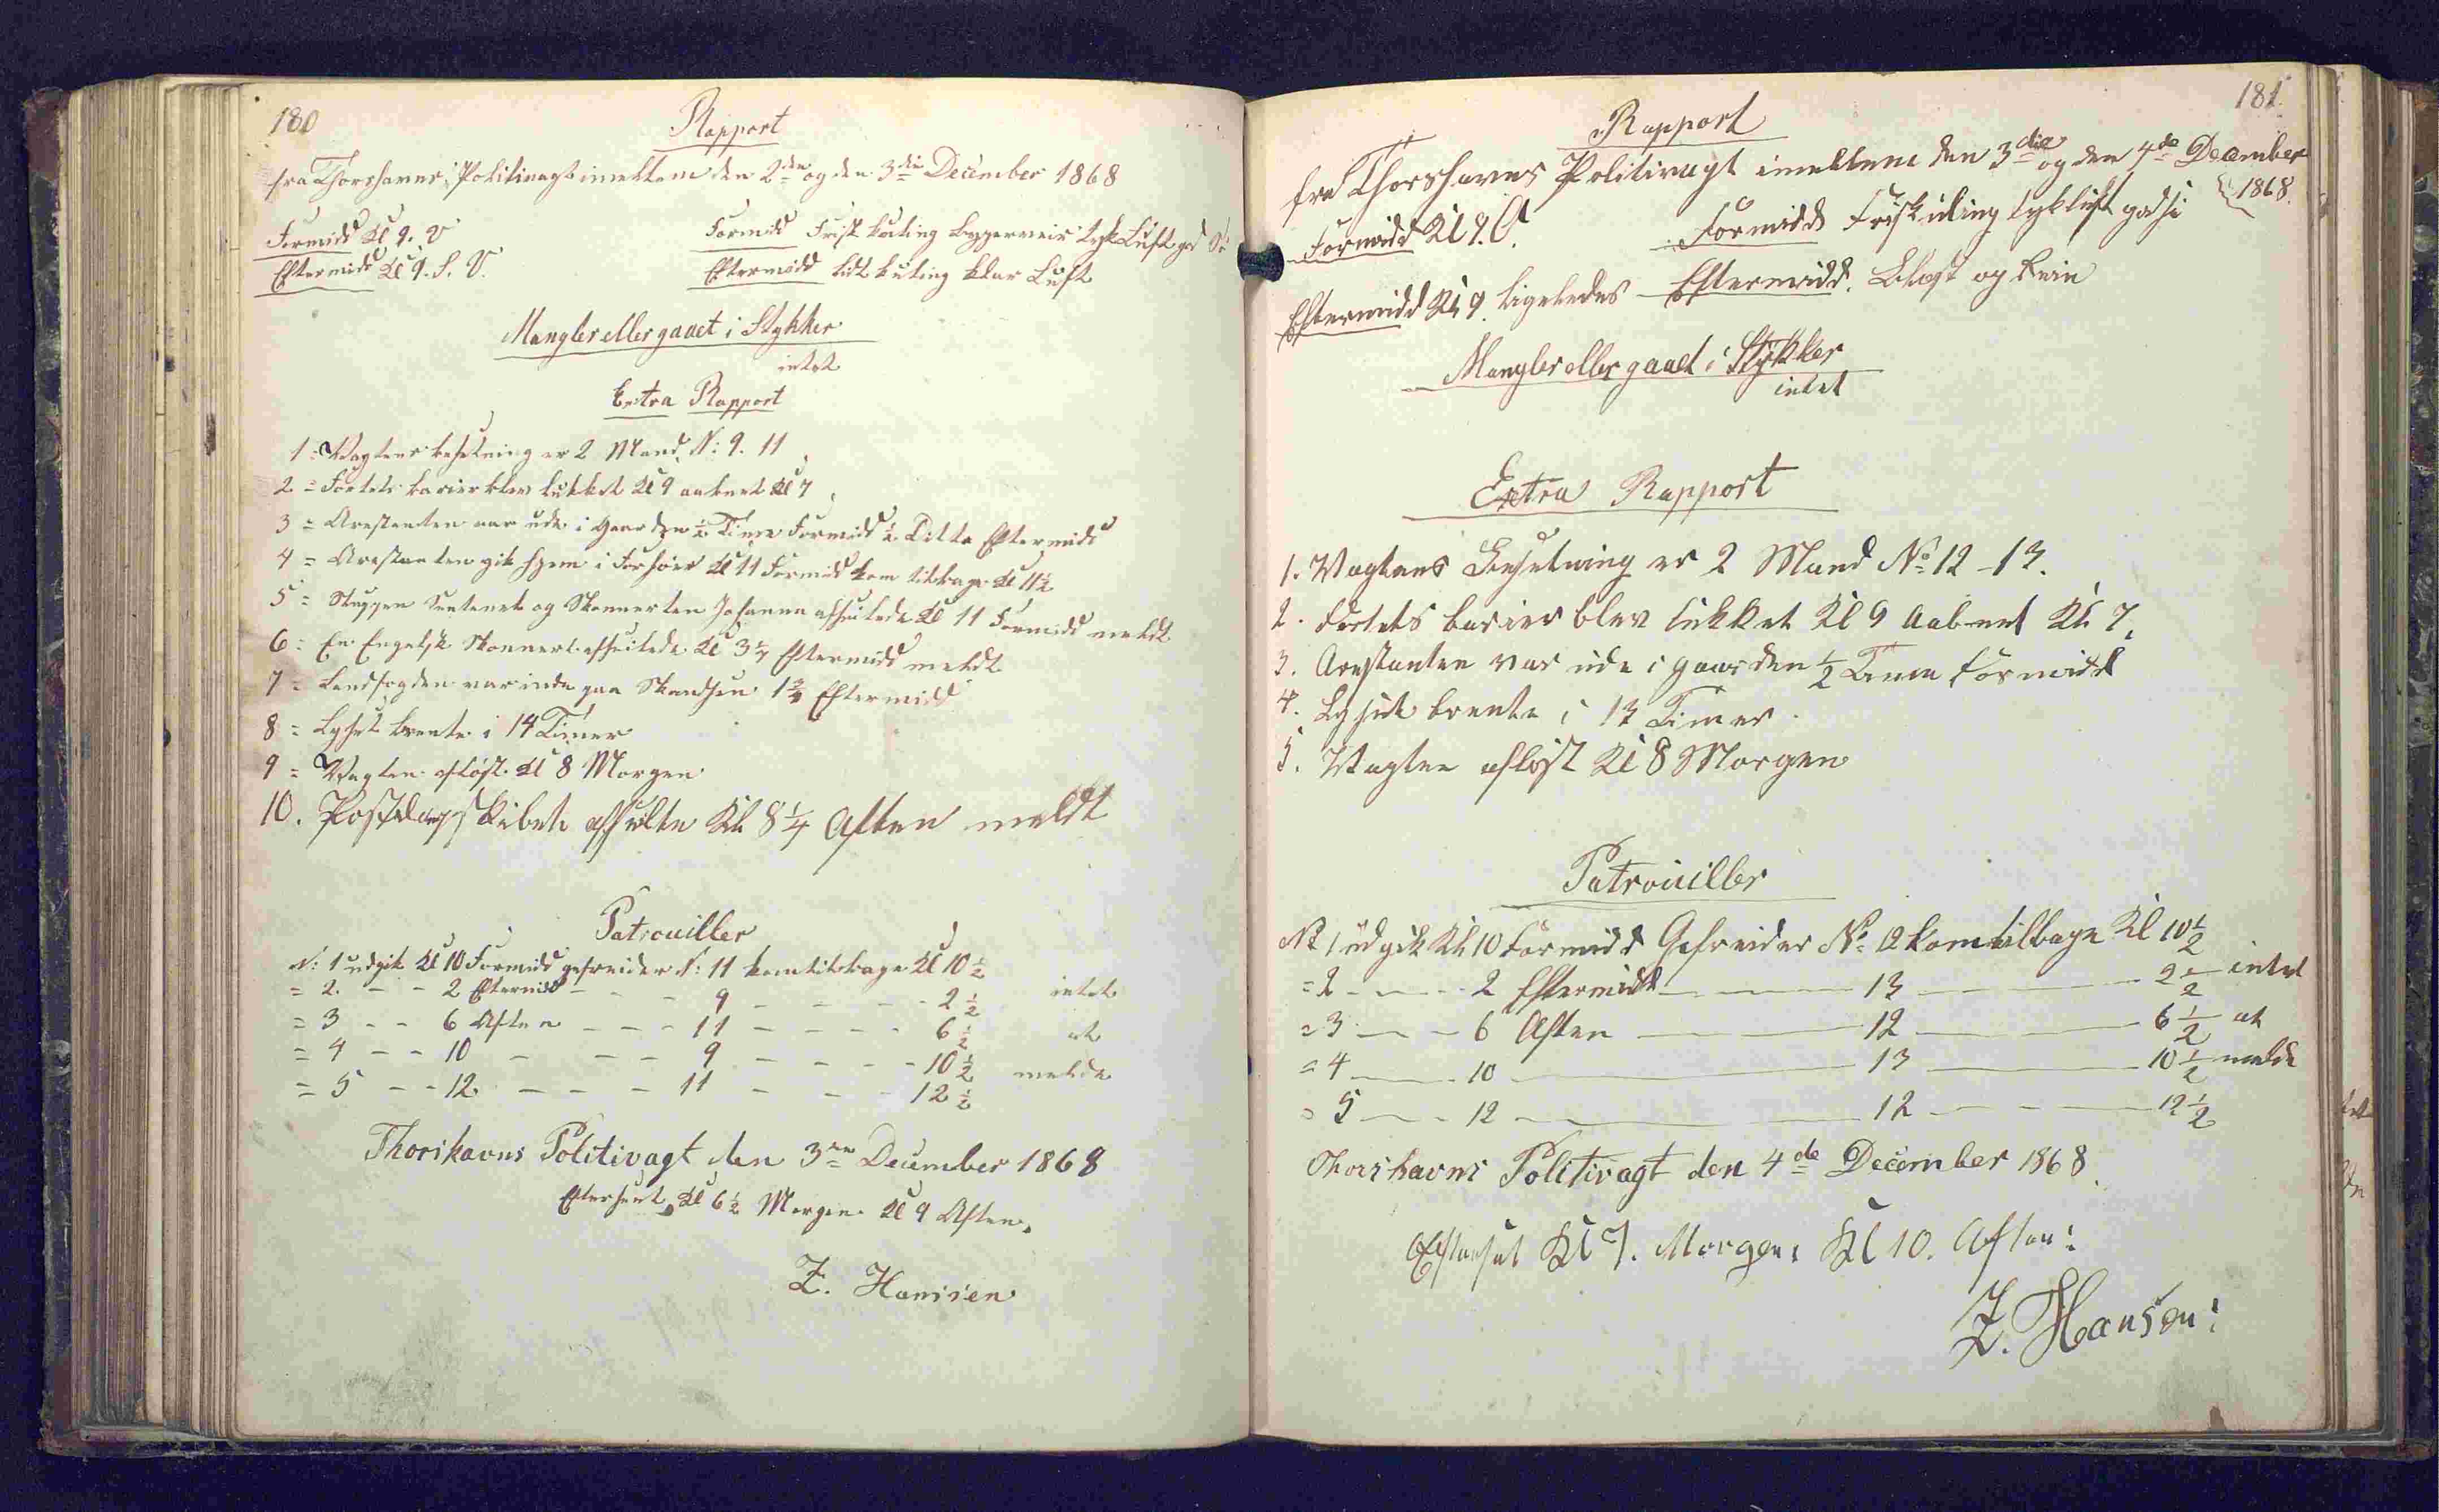 180
Rapport
fra Thorshavns Politivagt imellem den 2den og den 3die December 1868
Formidd Kl 9. V
Formidd Frisk kuling byggerveir tyk Luft god Sö
Eftermidd Kl 9. S. V.
Eftermidd lidt kuling klar Luft
Mangler eller gaaet i Stykker
intet
Extra Rapport
1 = Vagtens besetning er 2 Mand. N: 9. 11
2 = Fortets barier blev lukket Kl 9 aabnet Kl 7
3 = Arestanten var ude i Gaarden ½ Time Formidd ½ Ditto Eftermidd
4 = Arestanten gik hjem i Forhöir Kl 11 Formidd kom tilbage Kl 11½
5 = Sluppen og Skonnerten Johanna afseilede Kl 11 Formidd meldt
6 = En Engelsk Skonnert afseilede Kl 3¼ Eftermidd meldt
7 = Landfogden var inde paa Skandsen 1¾ Eftermidd
8 = Lyset brente i 14 Timer
9 = Vagten aflöst Kl 8 Morgen
10. Postdampskibet afseilte Kl 8¼ Aften meldt
Patrouiller
N: 1 udgik Kl 10 Formidd gefreider N: 11 kom tilbage Kl 10½
= 2 - - 2 Eftermidd - - - 9 - - - - 2½ intet
= 3 - - 6 Aften - - - 11 - - - - 6½ at
= 4 - - 10 - - - 9 - - - - 10½ melde
= 5 - - 12 - - - 11 - - - 12½
Thorshavns Politivagt den 3die December 1868
Efterseet Kl 6½ Morgen Kl 9 Aften.
Z. Hansen
181
Rapport
fra Thorshavns Politivagt imellem den 3die og den 4de December
1868.
Formidd Kl 9. O.
Formidd Frisk kuling tyk luft god sö
Eftermidd Kl 9 ligeledes
Eftermidd. Blæst og Rein
Mangler eller gaaet i Stykker
intet
Extra Rapport
1. Vagtens Besetning er 2 Mand No 12 - 13.
2. Fortets barier blev lukket Kl 9 Aabnet Kl 7
3. Arestanten var ude i gaarden ½ Time formidd
4. Lyset brente i 13 Timer
5. Vagten aflöst Kl 8 Morgen
Patrouiller
No 1 udgik Kl 10 Formidd Gefreider No 12 kom tilbage Kl 10½
= 2 - - - 2 Eftermidd - - 13 - - 2½ intet
= 3 - - 6 Aften - 12 - 6½ at
= 4 - - 10 - 13 - 10½ melde
= 5 - - 12 - 12 - - 12½
Thorshavns Politivagt den 4de December 1868.
Efterset Kl 7. Morgen Kl 10. Aften
Z. Hansen